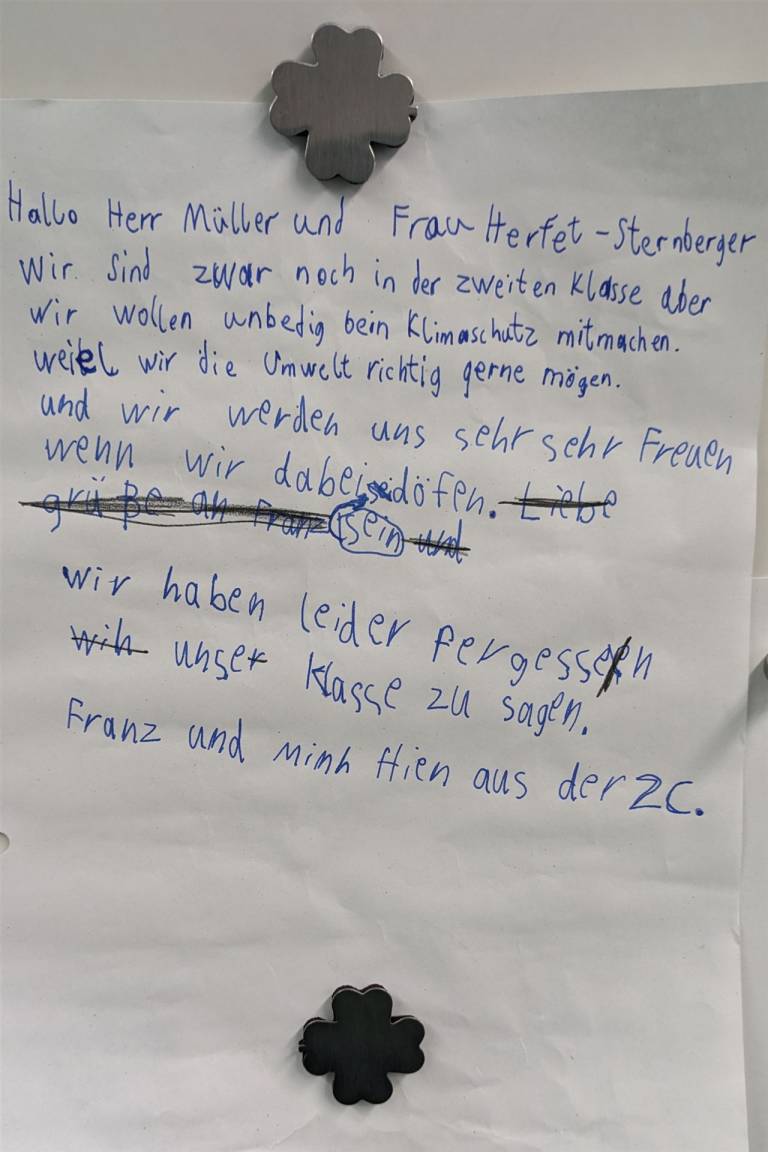 Hallo Herr Müller und Frau Herfet-Sternberger
Wir sind zwar noch in der zweiten Klasse aber
wir wollen unbedig bein Klimaschutz mitmachen.
weiel wir die Umwelt richtig gerne mögen.
und wir werden uns sehr sehr Freuen
wenn wir dabei döfen. Liebe
grüße an Franz sein und
wir haben leider fergessen
wih unser Klasse zu sagen.
Franz und Minh Hien aus der 2C.